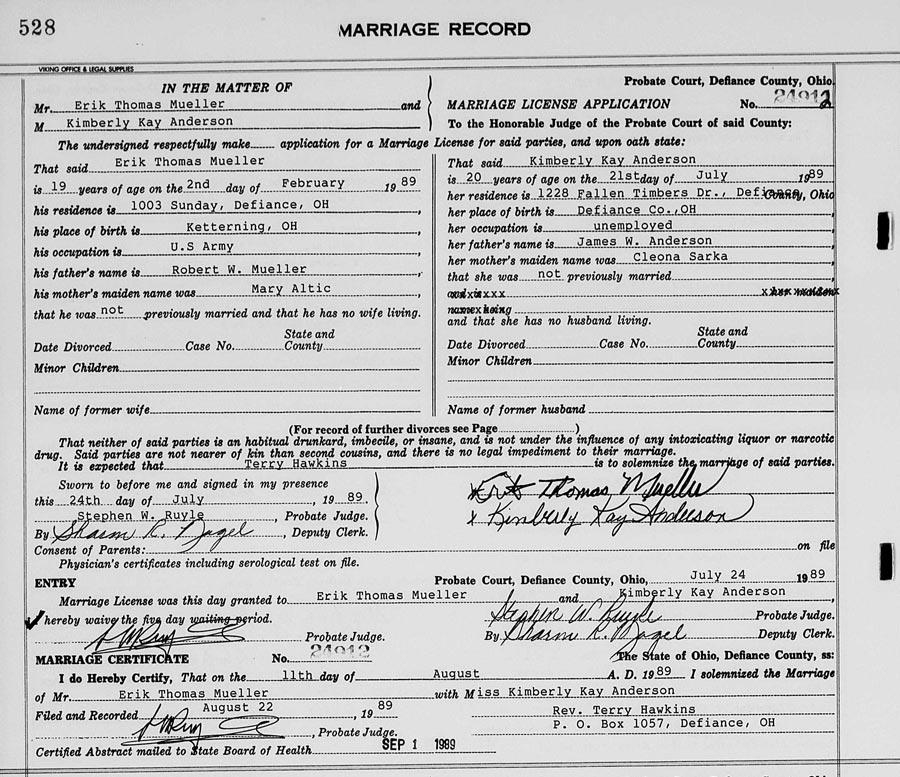 528
MARRIAGE RECORD
VIKING OFFICE & LEGAL SUPPLIES
IN THE MATTER OF
Mr. Erik Thomas Mueller and
M Kimberly Kay Anderson
Probate Court, Defiance County, Ohio.
MARRIAGE LICENSE APPLICATION No. 24912
To the Honorable Judge of the Probate Court of said County:
The undersigned respectfully make application for a Marriage License for said parties, and upon oath state:
That said Erik Thomas Mueller
is 19 years of age on the 2nd day of February 1989
his residence is 1003 Sunday, Defiance, OH,
his place of birth is Ketterning, OH,
his occupation is U.S Army,
his father's name is Robert W. Mueller,
his mother's maiden name was Mary Altic,
that he was not previously married and that he has no wife living.
State and
Date Divorced Case No. County
Minor Children
Name of former wife
That said Kimberly Kay Anderson
is 20 years of age on the 21st day of July 1989
her residence is 1228 Fallen Timbers Dr., Defiance County, Ohio
her place of birth is Defiance Co.,OH,
her occupation is unemployed
her father's name is James W. Anderson
her mother's maiden name was Cleona Sarka
that she was not previously married
and that she has no husband living.
State and
Date Divorced Case No. County
Minor Children
Name of former husband
(For record of further divorces see Page )
That neither of said parties is an habitual drunkard, imbecile, or insane, and is not under the influence of any intoxicating liquor or narcotic
drug. Said parties are not nearer of kin than second cousins, and there is no legal impediment to their marriage.
It is expected that Terry Hawkins is to solemnize the marriage of said parties.
Sworn to before me and signed in my presence
this 24th day of July, 1989.
Stephen W. Ruyle, Probate Judge.
By Sharon R. Nagel, Deputy Clerk.
x Erik Thomas Mueller
x Kimberly Kay Anderson
Consent of Parents: on file
Physician's certificates including serological test on file.
ENTRY Probate Court, Defiance County, Ohio, July 24 1989
Marriage License was this day granted to Erik Thomas Mueller and Kimberly Kay Anderson
✓ I hereby waive the five day waiting period.
Probate Judge.
Stephen W. Ruyle Probate Judge.
By Sharon R. Nagel Deputy Clerk.
MARRIAGE CERTIFICATE No. 24912 The State of Ohio, Defiance County, ss:
I do Hereby Certify, That on the 11th day of August A. D. 1989 I solemnized the Marriage
of Mr. Erik Thomas Mueller with Miss Kimberly Kay Anderson
Filed and Recorded August 22, 1989
Probate Judge.
Rev. Terry Hawkins
P. O. Box 1057, Defiance, OH
Certified Abstract mailed to State Board of Health SEP 1 1989